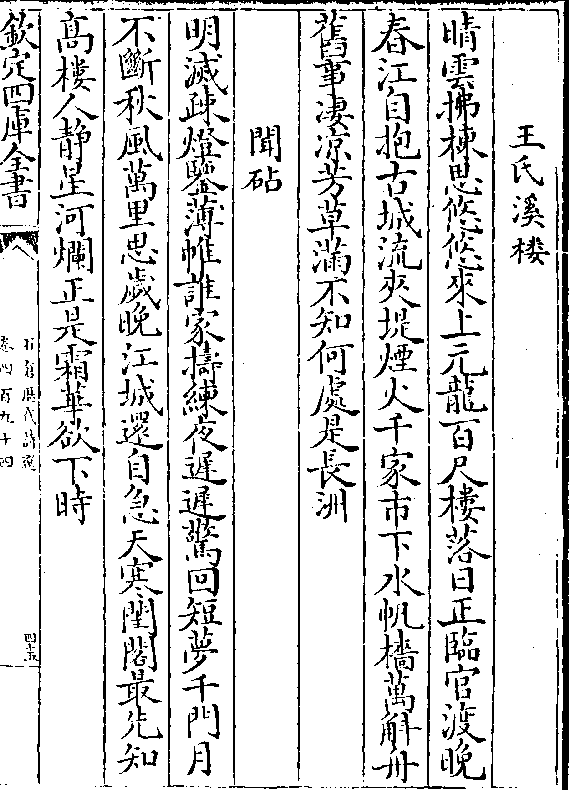 王氏溪樓
晴雲拂棟思悠悠來上元龍百尺樓落日正臨官渡晚
春江自抱古城流夾堤煙火千家市下水帆檣萬斛舟
舊事凄涼芳草滿不知何處是長洲
聞砧
明滅疎燈鑒薄帷誰家擣練夜遲遲驚回短夢千門月
不斷秋風萬里思歲晚江城還自急天寒閨閣最先知
高樓人静星河爛正是霜華欲下時
欽定四庫全書
卷四百九十四